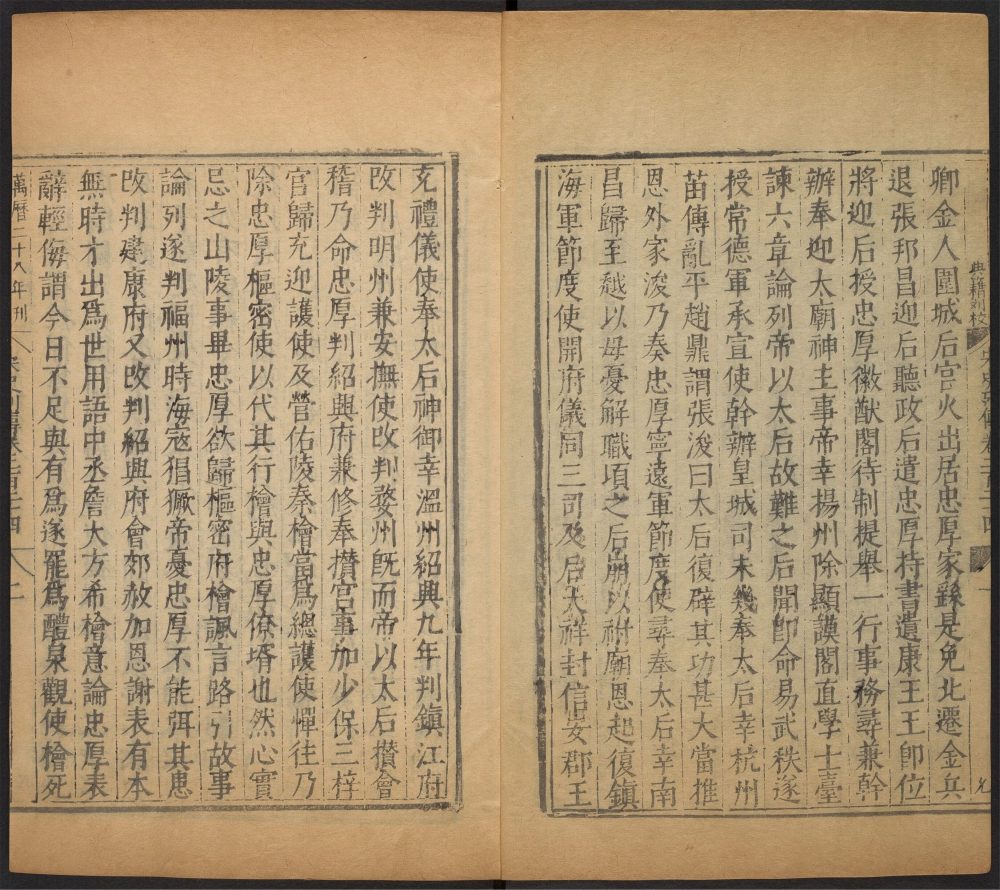 卿金人圍城后宮火出居忠厚家繇是免北遷金兵
退張邦昌迎后聽政后遣忠厚持書遺康王王卽位
將迎后授忠厚徽猷閣待制提舉一行事務尋兼幹
辦奉迎太廟神主事帝幸揚州除顯謨閣直學士臺
諫六章論列帝以太后故難之后聞卽命易武秩遂
授常德軍承宣使幹辦皇城司未幾奉太后幸杭州
苗傅亂平趙鼎謂張浚曰太后復辟其功甚大當推
恩外家浚乃奏忠厚寧遠軍節度使尋奉太后幸南
昌歸至越以母憂解職頃之后崩以祔廟恩起復鎮
海軍節度使開府儀同三司及后大祥封信安郡王
充禮儀使奉太后神御幸溫州紹興九年判鎮江府
改判明州兼安撫使改判婺州旣而帝以太后攢會
稽乃命忠厚判紹興府兼修奉攢宮事加少保三梓
宮歸充迎護使及營佑陵秦檜當爲總護使憚往乃
除忠厚樞密使以代其行檜與忠厚僚壻也然心實
忌之山陵事畢忠厚欲歸樞密府檜諷言路引故事
論列遂判福州時海寇猖獗帝憂忠厚不能弭其患
改判建康府又改判紹興府會郊赦加恩謝表有本
無時才出爲世用語中丞詹大方希檜意論忠厚表
辭輕侮謂今日不足與有爲遂罷爲醴泉觀使檜死
萬曆二十八年刊